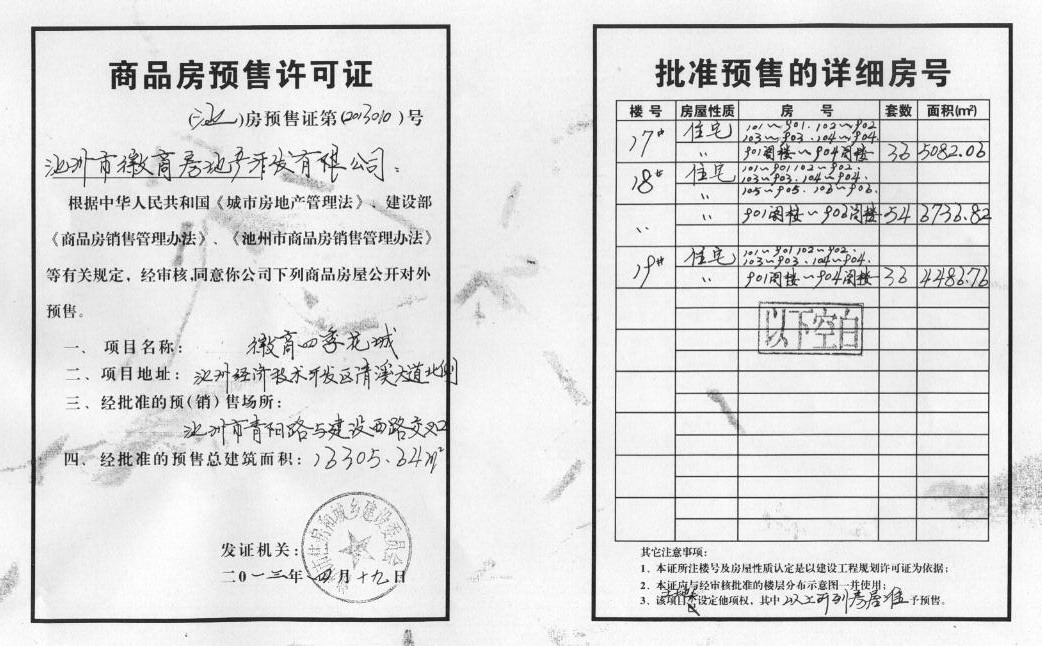 商品房预售许可证
(池)房预售证第(2013010)号
池州市徽商房地产开发有限公司:
根据中华人民共和国《城市房地产管理法》、建设部
《商品房销售管理办法》、《池州市商品房销售管理办法》
等有关规定,经审核,同意你公司下列商品房屋公开对外
预售。
一、项目名称: 徽商四季花城
二、项目地址: 池州经济技术开发区清溪大道北侧
三、经批准的预(销)售场所:
池州市青阳路与建设西路交口
四、经批准的预售总建筑面积: 16305.64m²
发证机关:
二0一三年四月十九日
批准预售的详细房号
楼号 房屋性质 房号 套数 面积(m²)
17# 住宅 101~901.102~902
103~903.104~904
〃 901阁楼~904阁楼 36 5082.06
18# 住宅 101~901 102~902.
103~903.104~904.
105~905.106~906.
〃 〃 901阁楼~906阁楼 54 6736.82
19# 住宅 101~901 102~902.
103~903.104~904.
〃 901阁楼~904阁楼 36 4486.76
以下空白
其它注意事项:
1、本证所注楼号及房屋性质认定是以建设工程规划许可证为依据;
2、本证应与经审核批准的楼层分布示意图一并使用;
3、该项目 设定他项权,其中 以上所列房屋准 予预售。